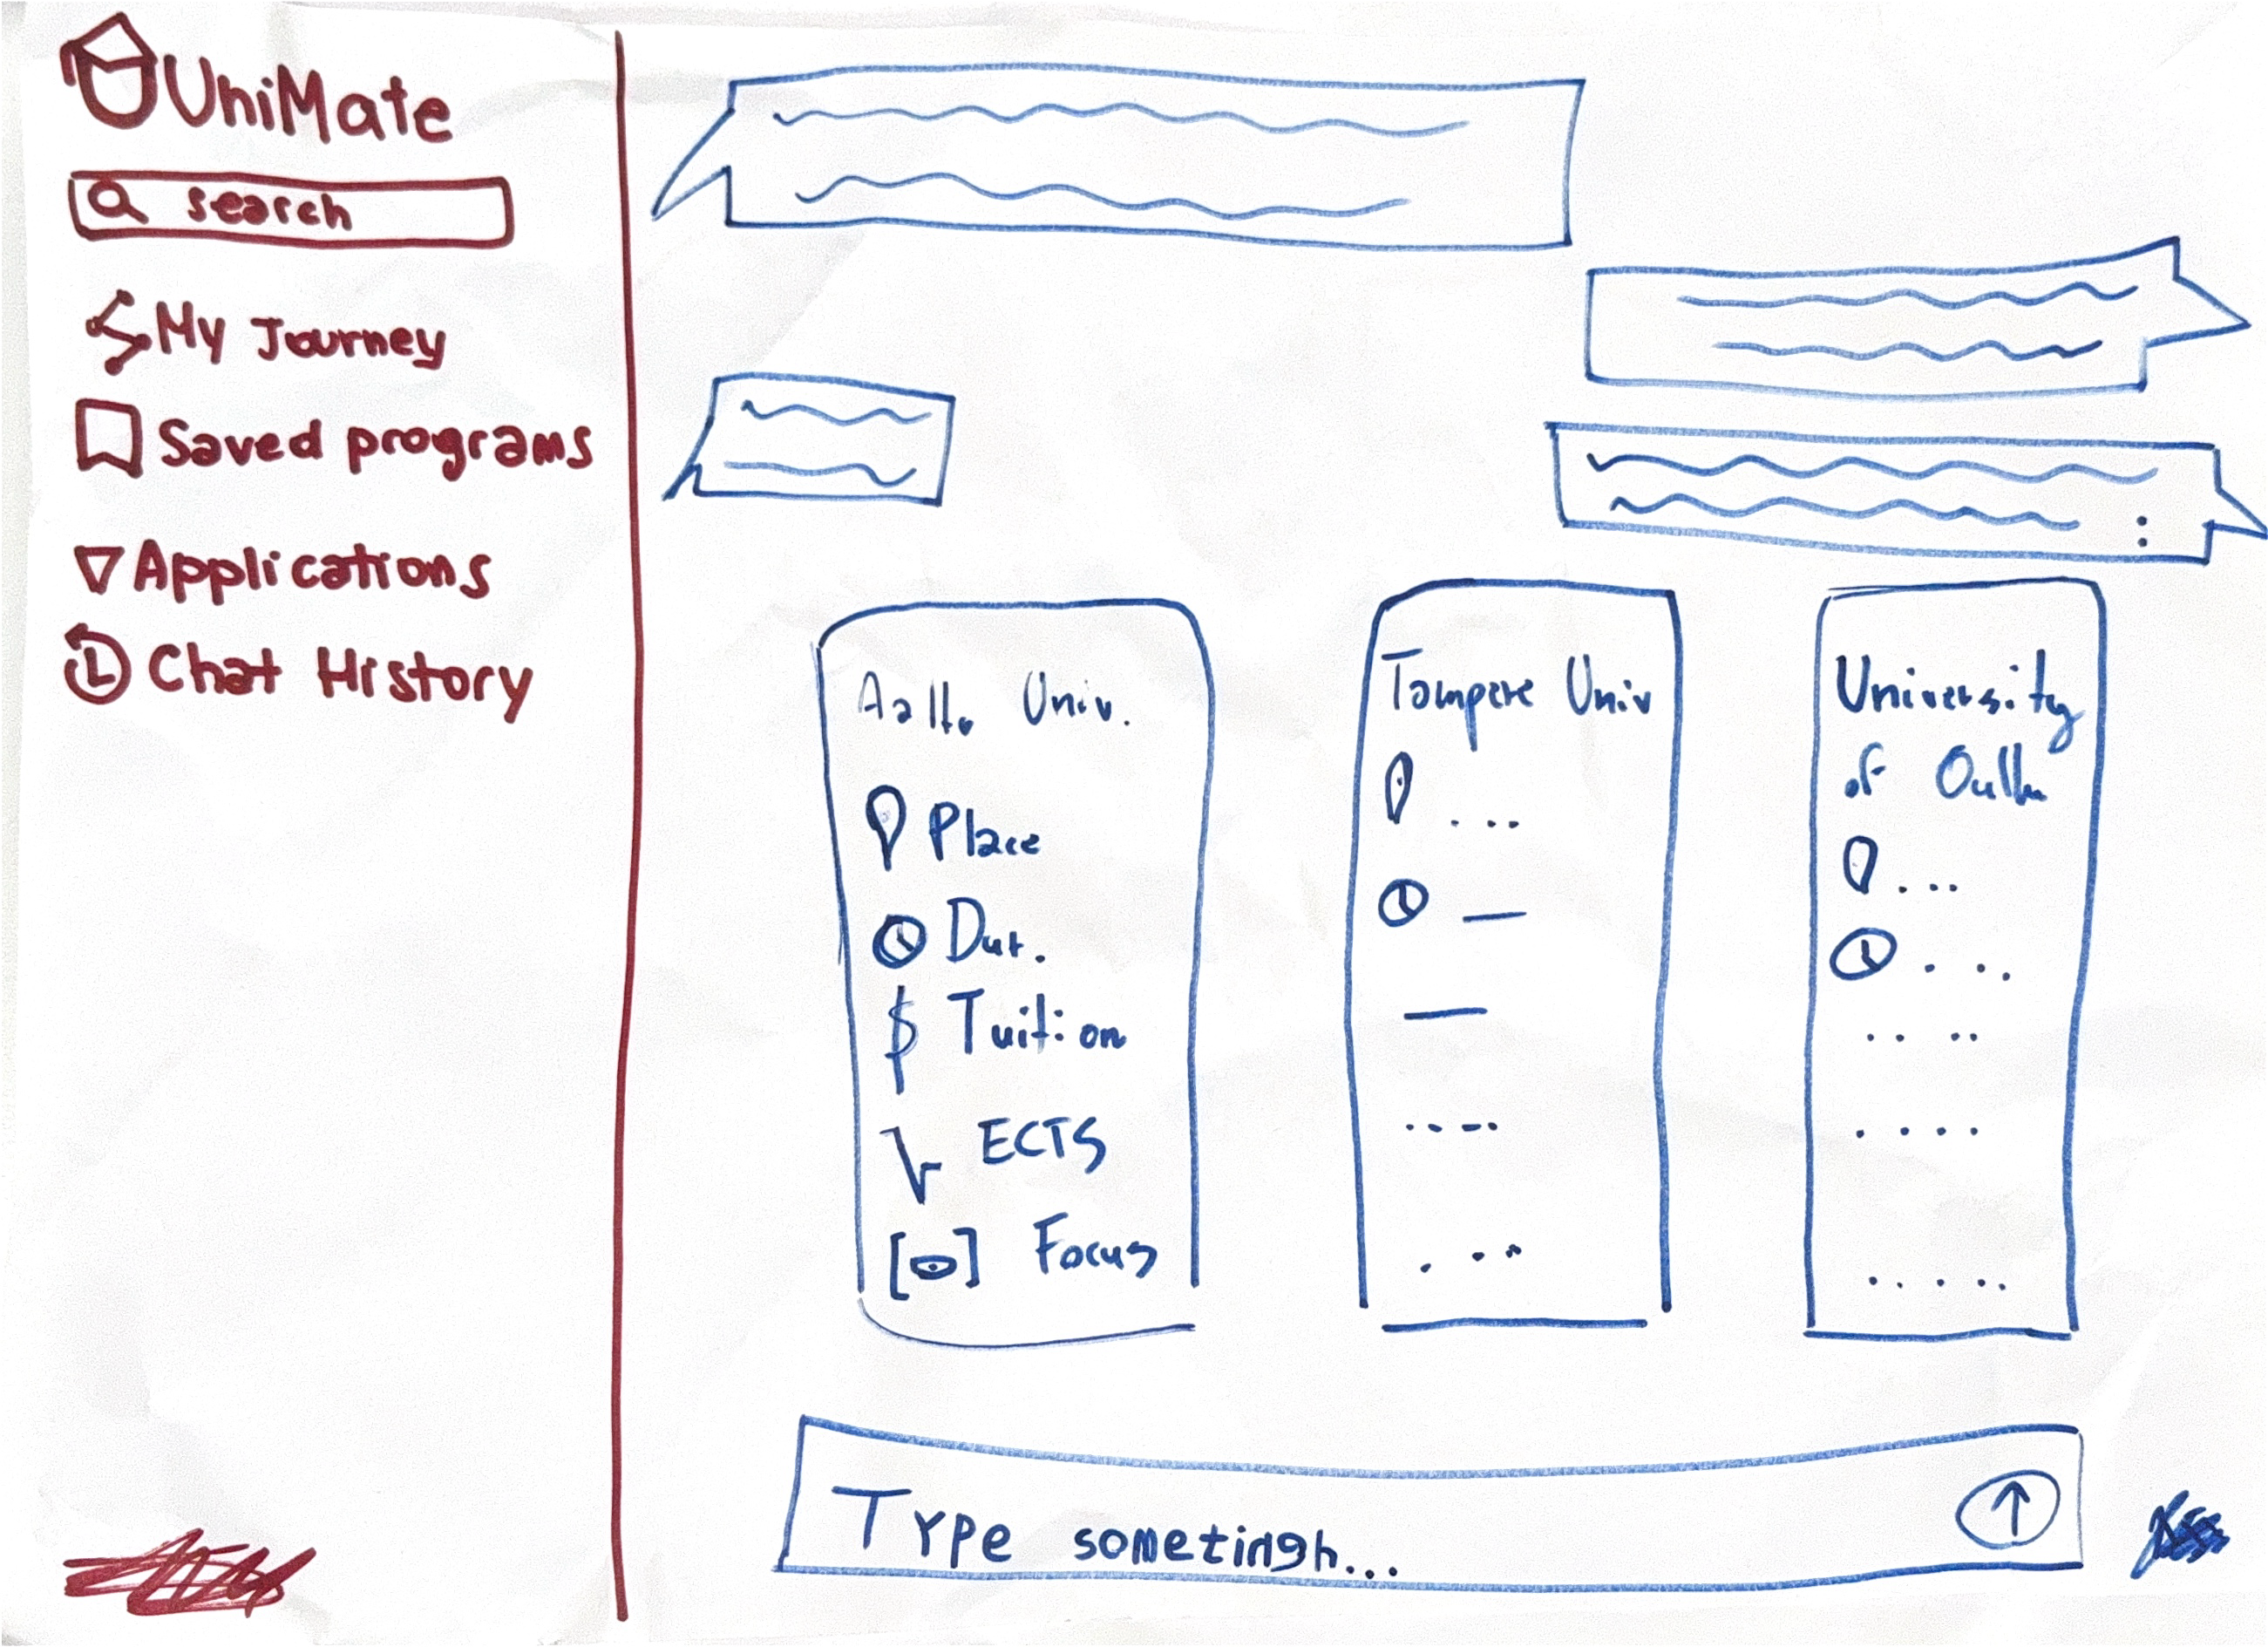 UniMate
search
My Journey
Saved programs
Applications
Chat History
Aalto Univ.
Place
Dur.
$ Tuition
ECTS
[ ] Focus
Tampere Univ
...
University
of Oullu
...
Type sometingh...